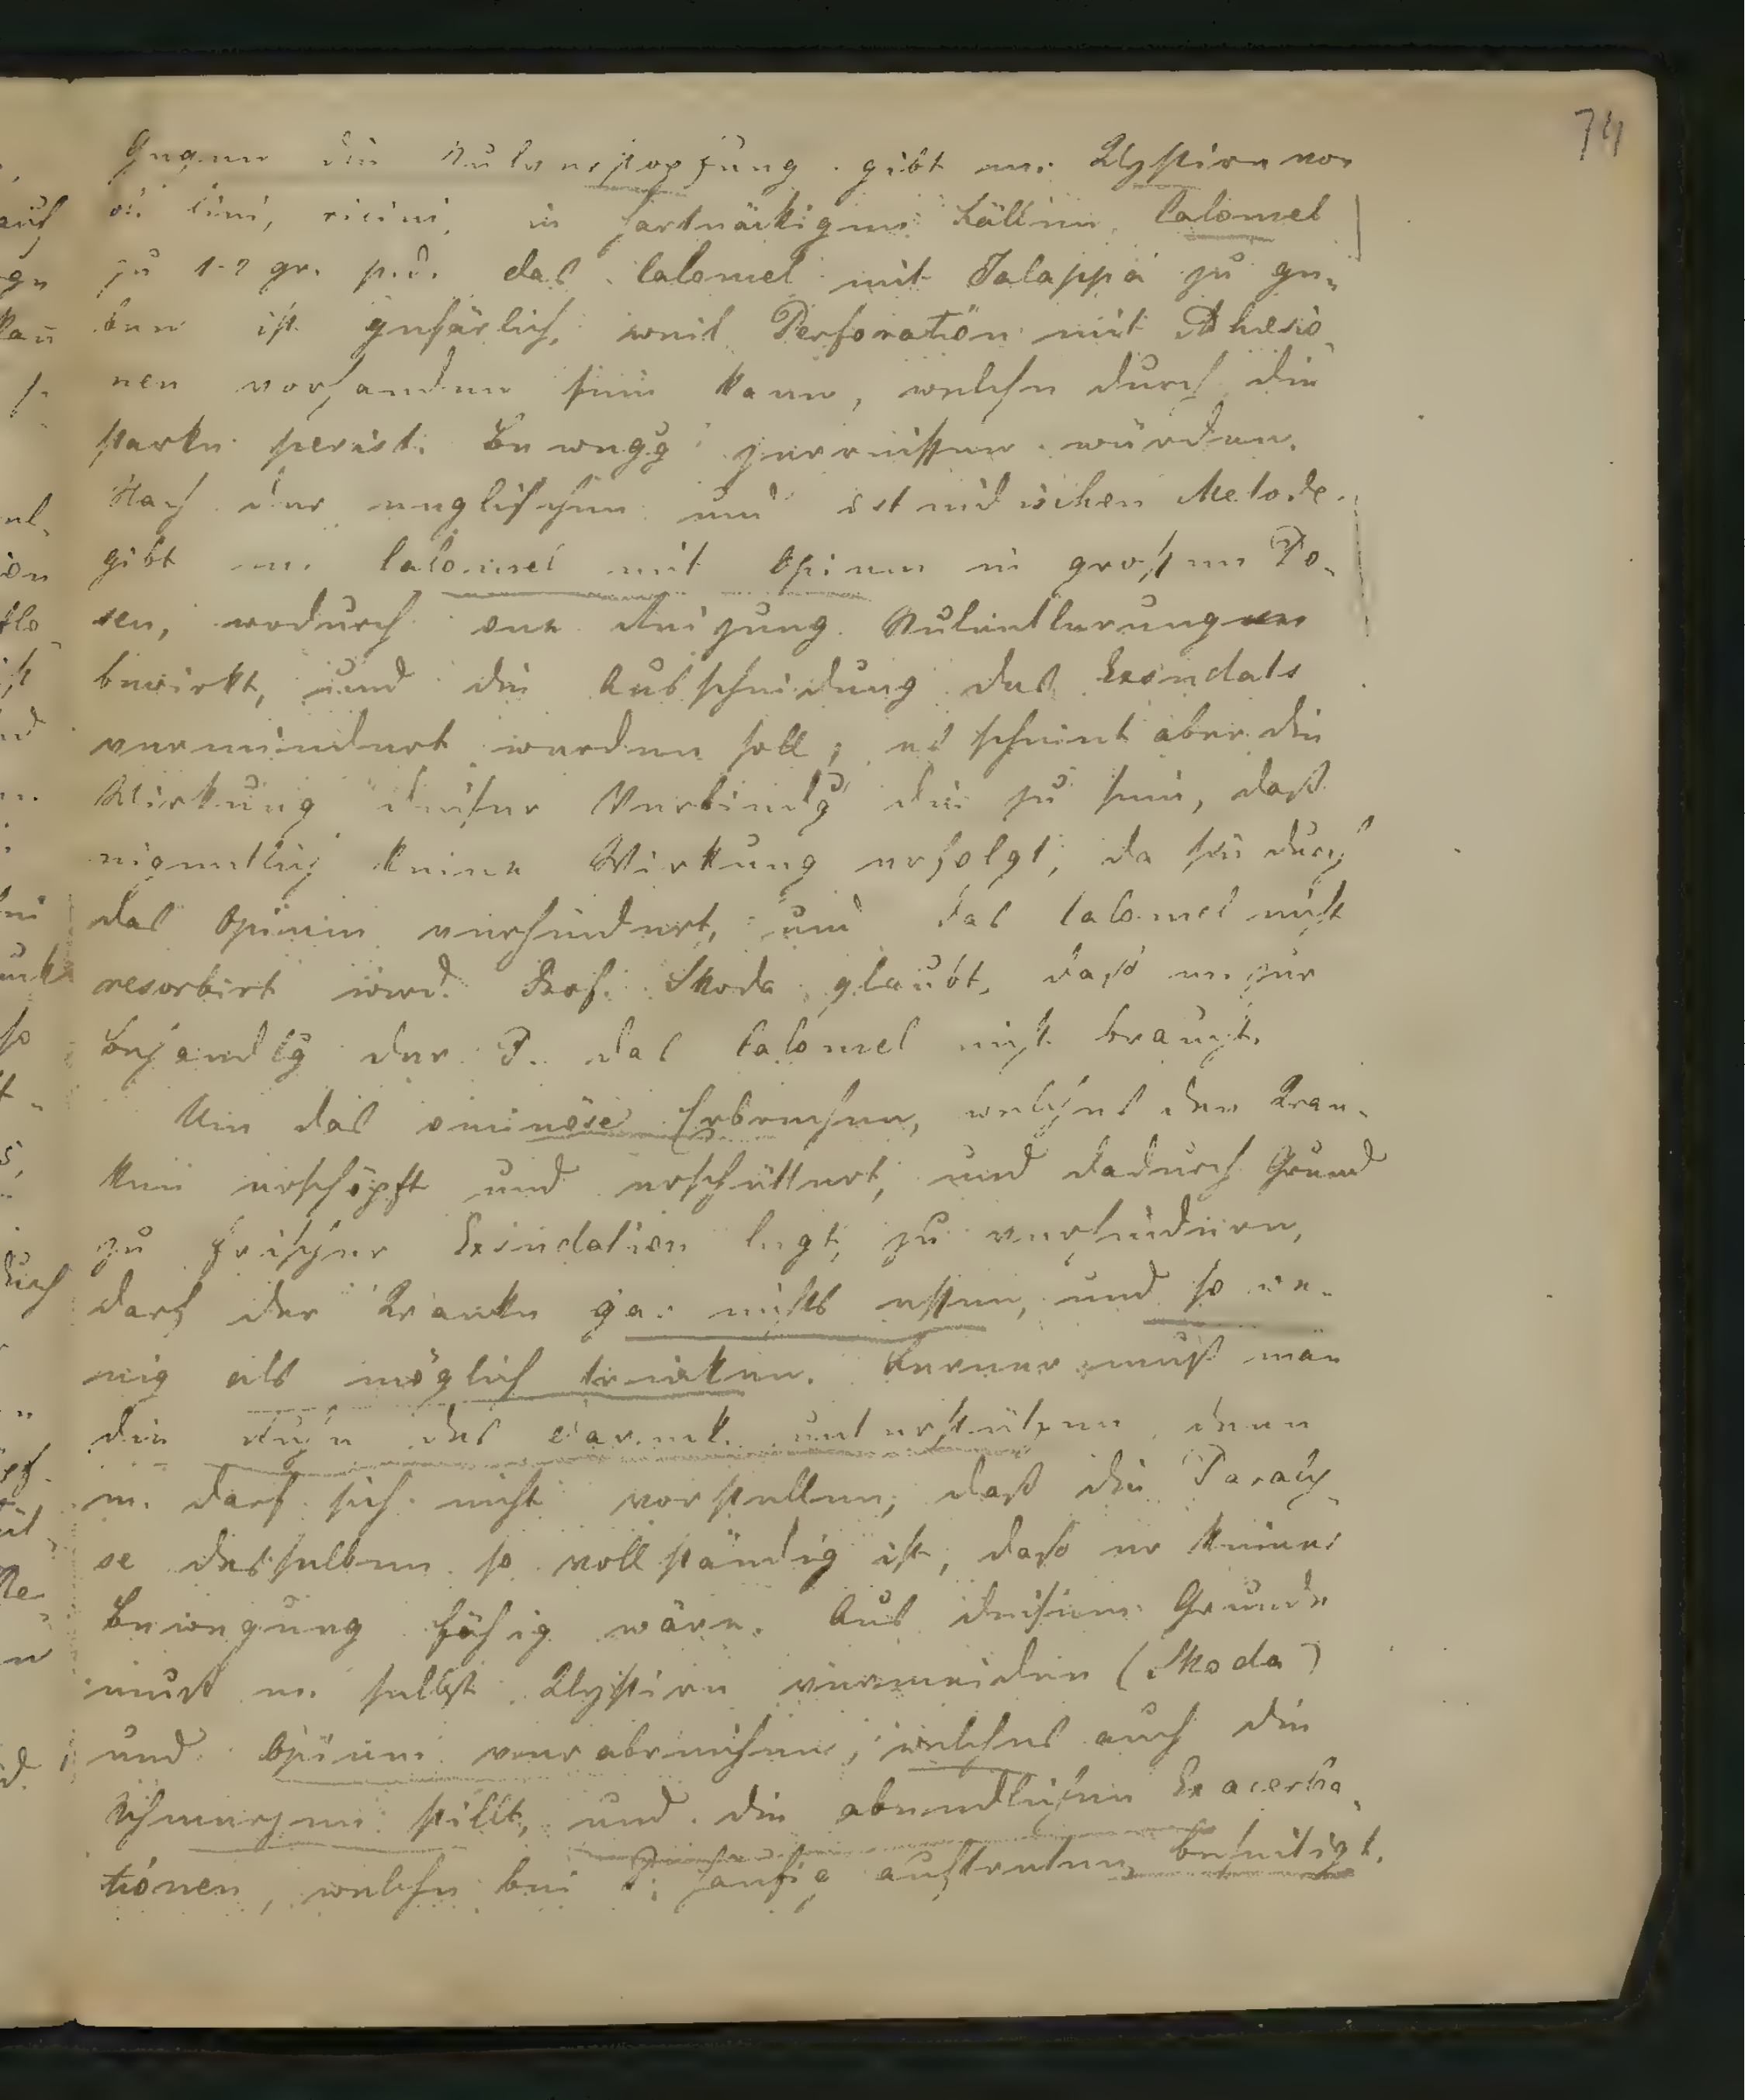 74
Gegen die Stulverstopfung gibt m. Klystire von
ol. lini, ricini, in hartnäckigen Fällen Calomel
zu 1-2 gr. p.d. das Calomel mit Jalappa zu ge-
ben ist gefärlich, weil Perforation mit Adhesio-
nen vorhanden sein kann, welche durch die
starke perist. Bewegg zerrissen würden.
Nach der englischen und ostindischen Metode
gibt m. Calomel mit Opium in großen Do-
sen, wodurch one Reizung Stulentlerungen
bewirkt, und die Ausscheidung des Exsudats
vermindert werden soll; es scheint aber die
Wirkung dieser Verbindg die zu sein, daß
eigentlich keine Wirkung erfolgt, da sie durch
das Opium verhindert, und das Calomel nicht
resorbirt wird. Prof. Skoda glaubt, daß m. zur
Behandlg der P. das Calomel nicht braucht.
Um das ominöse Erbrechen, welches den Kran-
ken erschöpft und erschüttert, und dadurch Grund
zu frischer Exsudation legt, zu verhindern,
darf der Kranke gar nichts essen, und so we-
nig als möglich trinken. Ferner muß man
die Ruhe des Darmk. unterstützen, denn
m. darf sich nicht vorstellen, daß die Paraly-
se desselben so vollständig ist, daß er keiner
Bewegung fähig wäre. Aus diesem Grunde
muß m. selbst Klystire vermeiden (Skoda)
und Opium verabreichen, welches auch die
Schmerzen stillt, und die abendlichen Exacerba-
tionen, welche bei P. häufig auftreten, beseitigt.